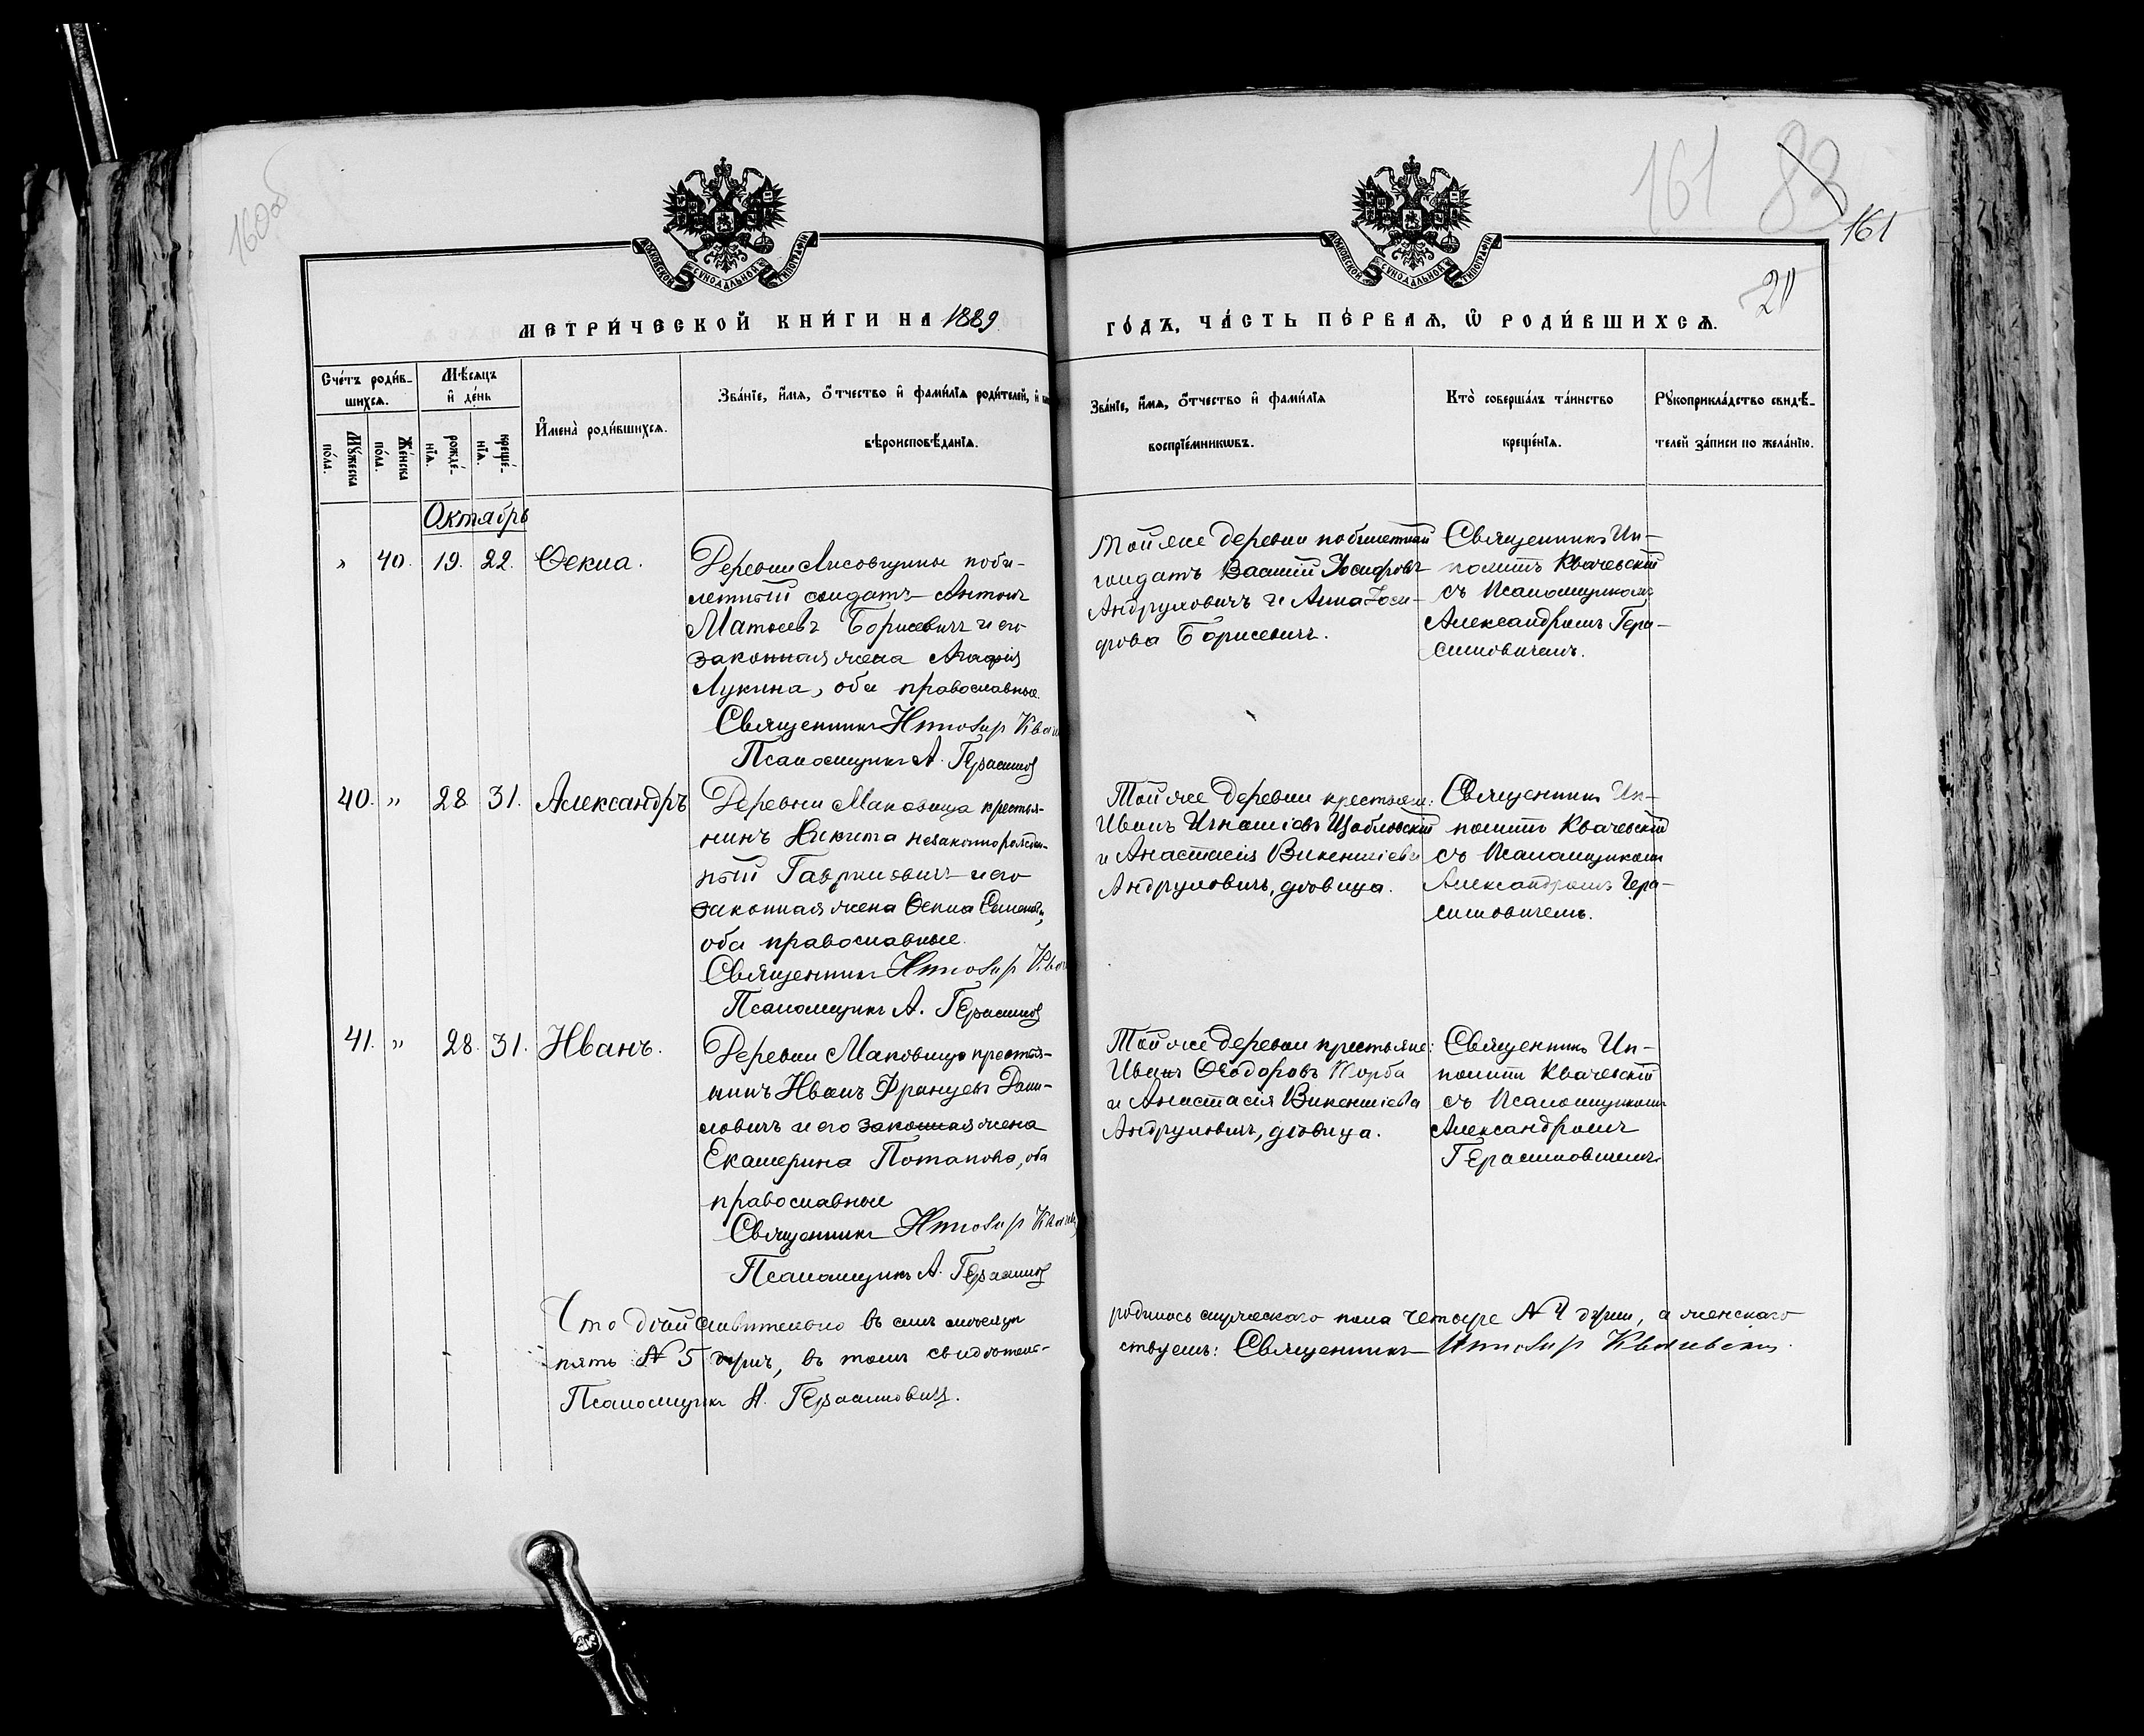 160об
161 83
161
21
МОСКОВСКОЙ СѴНОДАЛЬНОЙ ТИПОГРАФІИ
МОСКОВСКОЙ СѴНОДАЛЬНОЙ ТИПОГРАФІИ
МЕТРИ́ЧЕСКОЙ КНИ́ГИ НА 1889
ГО́ДЪ, ЧА́СТЬ ПЕ́РВАѦ, Ѿ РОДИ́ВШИХСѦ.
Сче́тъ роди́в-
шихсѧ.
Мꙋ́жеска по́ла.
Же́нска по́ла.
Мѣ́сѧцъ
и҆ де́нь
рожде́-
нїѧ.
креще́-
нїѧ.
И҆мена̀ роди́вшихсѧ.
Зва́нїе, и҆́мѧ, ѻ҆́тчество и҆ фами́лїѧ роди́телей, и҆
вѣроисповѣ́данїѧ.
Зва́нїе, и҆́мѧ, ѻ҆́тчество и҆ фами́лїѧ
воспрїе́мникѡвъ.
Кто̀ соверша́лъ та́инство
креще́нїѧ.
Рꙋкоприкла́дство свидѣ́-
телей за́писи по жела́нїю.
Октябрь
" 40. 19. 22. Ѳекла.
Деревни Лисовщины поби-
летный солдатъ Антонъ
Матѳеевъ Борисевичъ и его
законная жена Агафія
Лукина, оба православные.
Священникъ Ипполитъ Квач
Псаломщикъ А. Герасимов
Той же деревни побилетный
солдатъ Василій Іосифовъ
Андруловичъ и Анна Іоси-
фова Борисевичъ.
Священникъ Ип-
политъ Квачевскій
съ Псаломщикомъ
Александромъ Гера-
симовичемъ.
40. " 28 31. Александръ
Деревни Маковища крестья-
нинъ Никита незаконнорожден-
ный Гавриловичъ и его
законная жена Ѳекла Семенов,
оба православные.
Священникъ Ипполитъ Квач
Псаломщикъ А. Герасимов
Той же деревни крестьяне:
Иванъ Игнатіевъ Щабловскій
и Анастасія Викентіева
Андруловичъ, дѣвица.
Священникъ Ип-
политъ Квачевскій
съ Псаломщикомъ
Александромъ Гера-
симовичемъ.
41. " 28. 31. Иванъ.
Деревни Маковища крестья-
нинъ Иванъ Францевъ Дани-
ловичъ и его законная жена
Екатерина Потапова, оба
православные
Священникъ Ипполитъ Квачев
Псаломщикъ А. Герасимов
Той же деревни крестьяне:
Иванъ Ѳеодоровъ Корба
и Анастасія Викентіева
Андруловичъ, дѣвица.
Священникъ Ип-
политъ Квачевскій
съ Псаломщикомъ
Александромъ
Герасимовичемъ.
Что дѣйствительно въ семъ мѣсяцѣ
родилось мужескаго пола четыре № 4 души, а женскаго
пять № 5 душъ, въ томъ свидѣтель-
ствуемъ: Священникъ Ипполитъ Квачевскій.
Псаломщикъ А. Герасимовичъ.